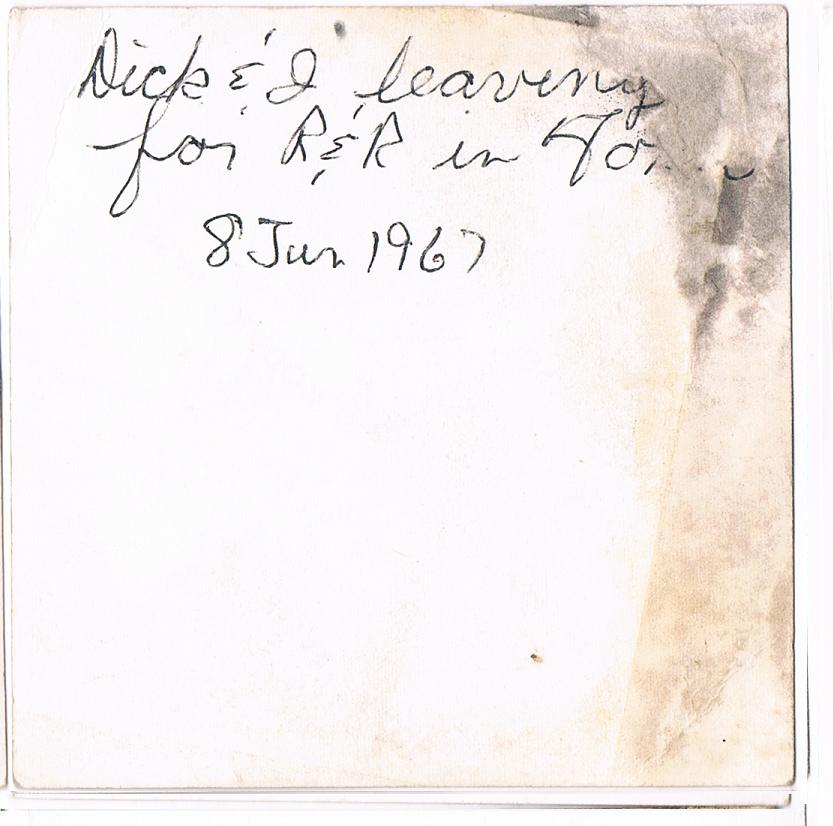 Dick & I leaving
for R&R in
8 Jun 1967